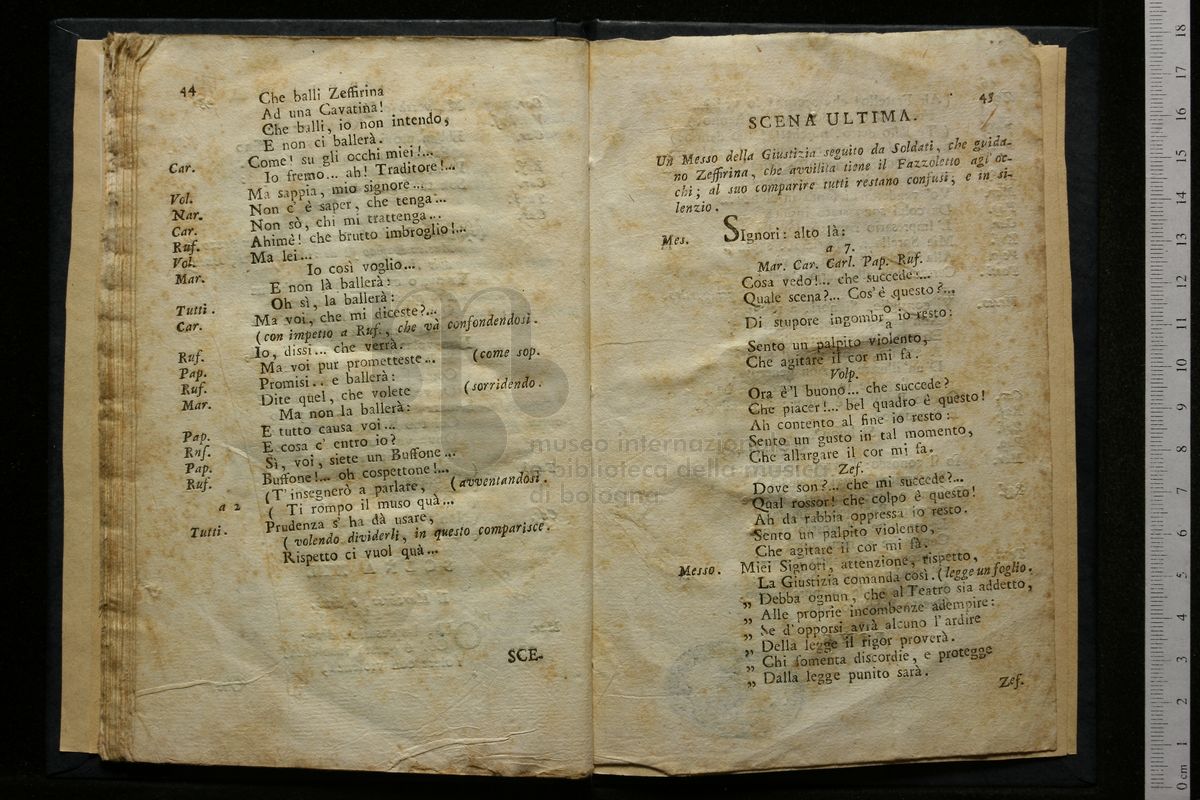 44
Che balli Zeffirina
Ad una Cavatina!
Che balli, io non intendo,
E non ci ballerà.
Car. Come! su gli occhi miei!...
Io fremo... ah! Traditore!...
Vol. Ma sappia, mio signore...
Nar. Non c' è saper, che tenga...
Car. Non sò, chi mi trattenga...
Ruf. Ahimè! che brutto imbroglio!...
Vol. Ma lei...
Mar. Io così voglio...
E non là ballerà:
Tutti. Oh sì, la ballerà:
Car. Ma voi, che mi diceste?...
(con impeto a Ruf., che và confondendosi.
Ruf. Io, dissi... che verrà.
Pap. Ma voi pur prometteste... (come sop.
Ruf. Promisi.. e ballerà:
Mar. Dite quel, che volete (sorridendo.
Ma non la ballerà:
Pap. E tutto causa voi...
Rnf. E cosa c' entro io?
Pap. Sì, voi, siete un Buffone...
Ruf. Buffone!... oh cospettone!...
a 2 (T' insegnerò a parlare, (avventandosi.
( Ti rompo il muso quà...
Tutti. Prudenza s' ha dà usare,
( volendo dividerli, in questo comparisce.
Rispetto ci vuol quà...
SCE-
45
SCENA ULTIMA.
Un Messo della Giustizia seguito da Soldati, che guida-
no Zeffirina, che avvilita tiene il Fazzoletto agi' oc-
chi; al suo comparire tutti restano confusi, e in si-
lenzio.
Mes. SIgnori: alto là:
a 7.
Mar. Car. Carl. Pap. Ruf.
Cosa vedo!... che succede!...
Quale scena?... Cos' è questo?...
Di stupore ingombr o/a io resto:
Sento un palpito violento,
Che agitare il cor mi fa.
Volp.
Ora è'l buono... che succede?
Che piacer!... bel quadro è questo!
Ah contento al fine io resto:
Sento un gusto in tal momento,
Che allargare il cor mi fa.
Zef.
Dove son?... che mi succede?...
Qual rossor! che colpo è questo!
Ah da rabbia oppressa io resto.
Sento un palpito violento,
Che agitare il cor mi fà.
Messo. Miei Signori, attenzione, rispetto,
La Giustizia comanda così. (legge un foglio.
„ Debba ognun, che al Teatro sia addetto,
„ Alle proprie incombenze adempire:
„ Se d' opporsi avrà alcuno l' ardire
„ Della legge il rigor proverà.
„ Chi fomenta discordie, e protegge
„ Dalla legge punito sarà.
Zef.
museo internazionale
e biblioteca della musica
di bologna
0 cm 1 2 3 4 5 6 7 8 9 10 11 12 13 14 15 16 17 18